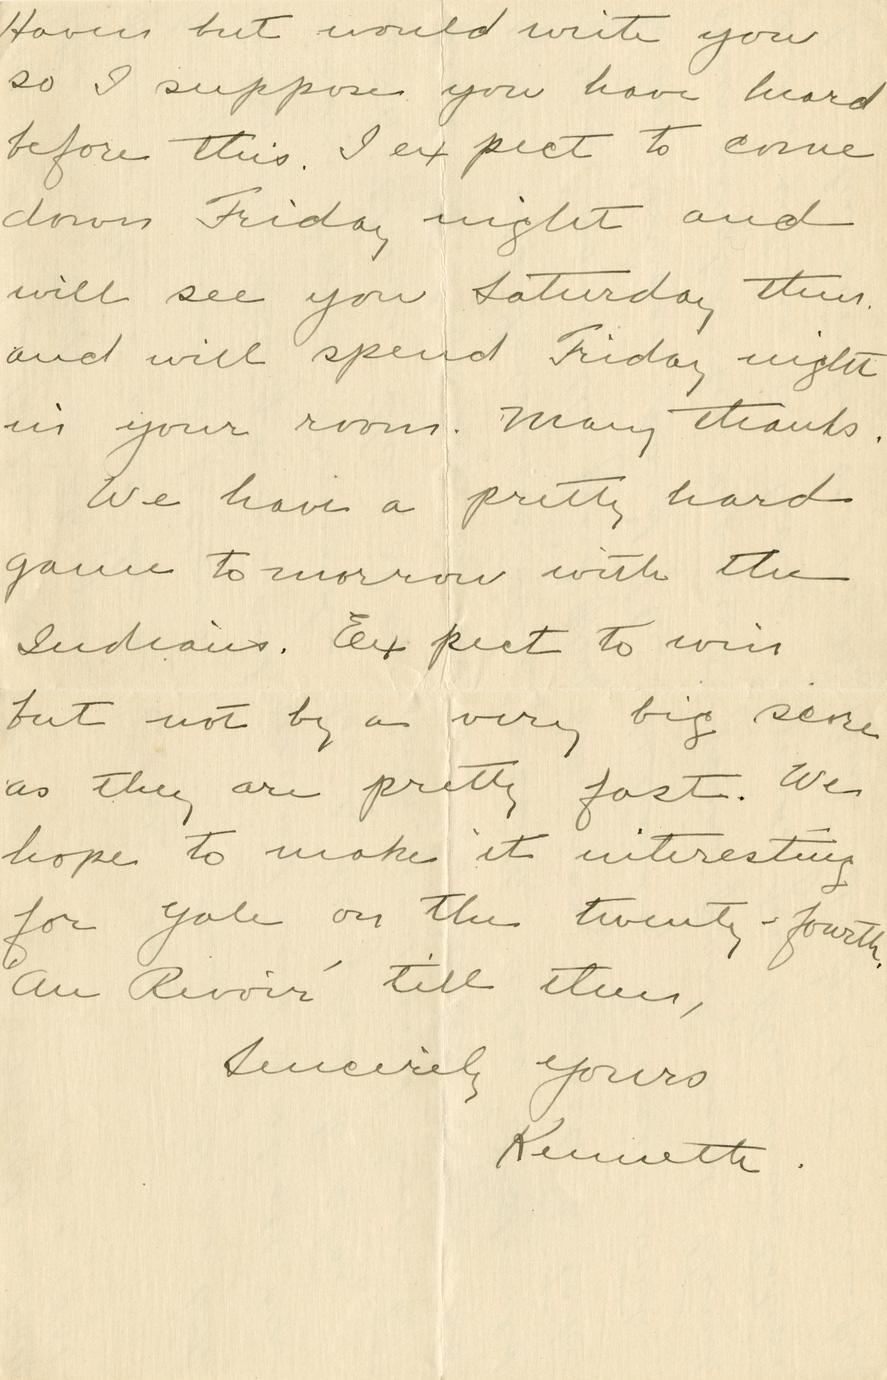 Haven but would write you
so I suppose you have heard
before this. I expect to come
down Friday night and
will see you Saturday then.
and will spend Friday night
in your room. Many thanks.
We have a pretty hard
game tomorrow with the
Indians. Expect to win
but not by a very big score
as they are pretty fast. We
hope to make it interesting
for Yale on the twenty-fourth.
'Au Revoir' till then,
Sincerely yours
Kenneth.